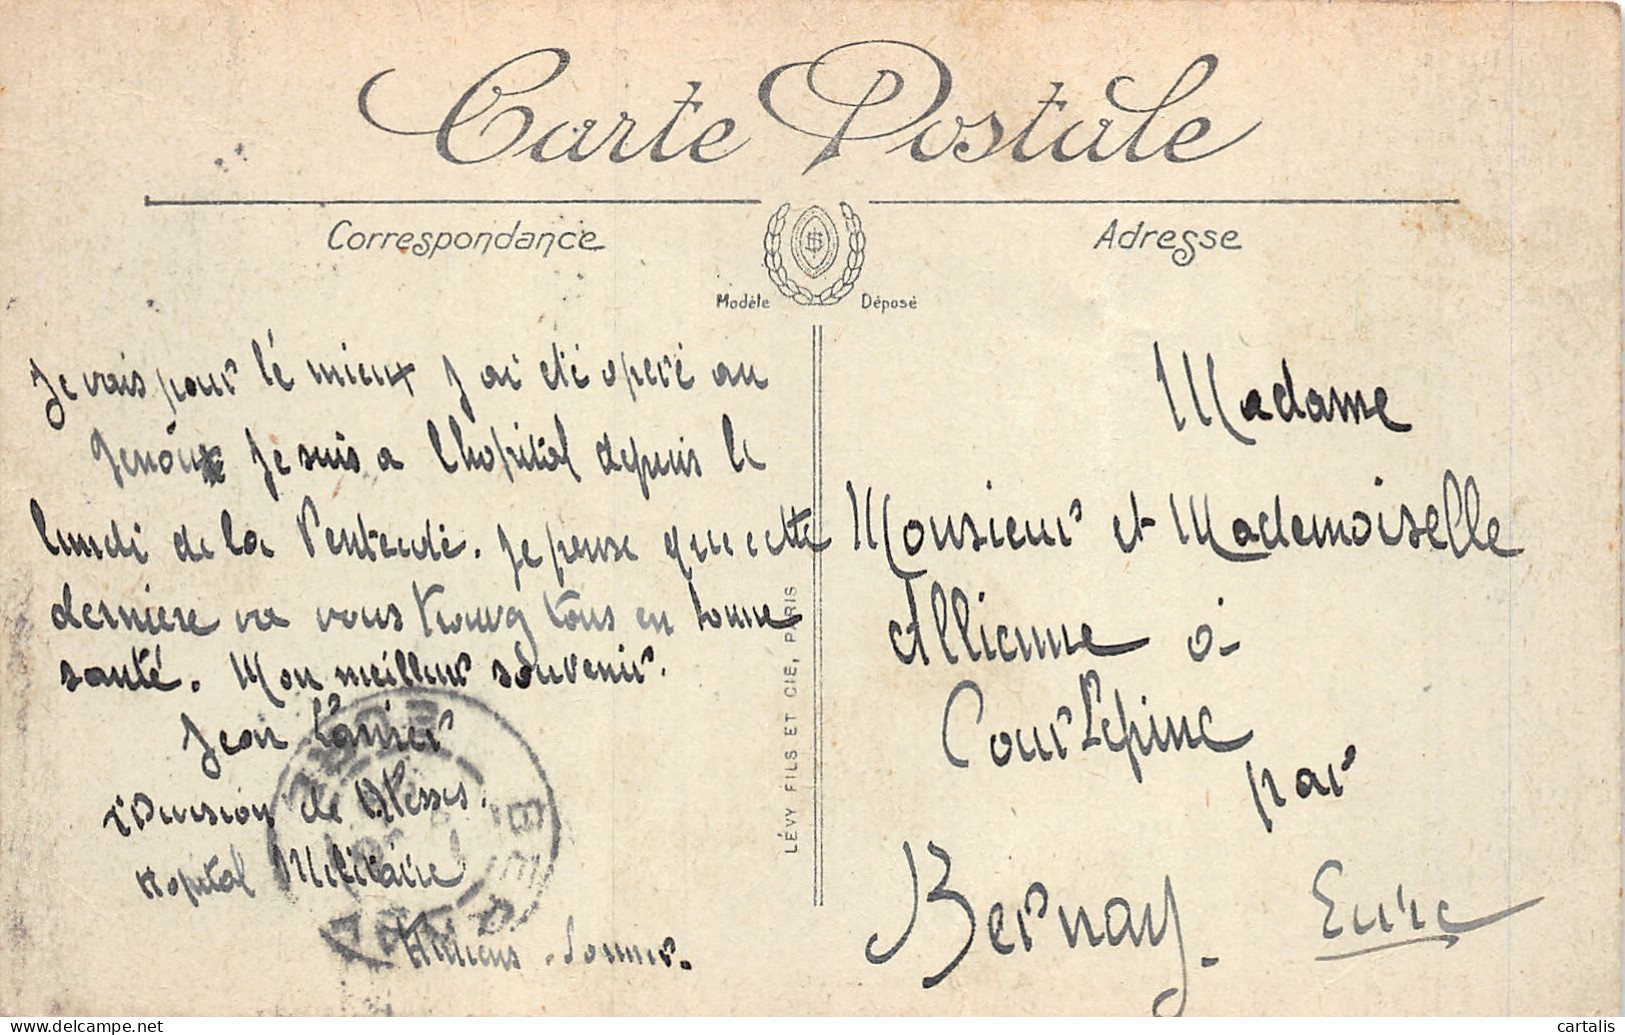 Carte Postale
Correspondance
Adresse
Modèle Déposé
Je vais pour lé mieux J ai été operé au
Jenoux Je suis a lhopital depuis le
lundi de la Pentecote. Je pense que cette
derniere va vous trouvez tous en bonne
santé. Mon meilleur souvenir.
Jean
Division de Blessés.
Hopital Militaire
Amiens. Somme.
LÉVY FILS ET CIE, PARIS
Madame
Monsieur et Mademoiselle
Allienne à
Courlepine
par
Bernay. Eure
BERNAY
EURE
cartalis
www.delcampe.net